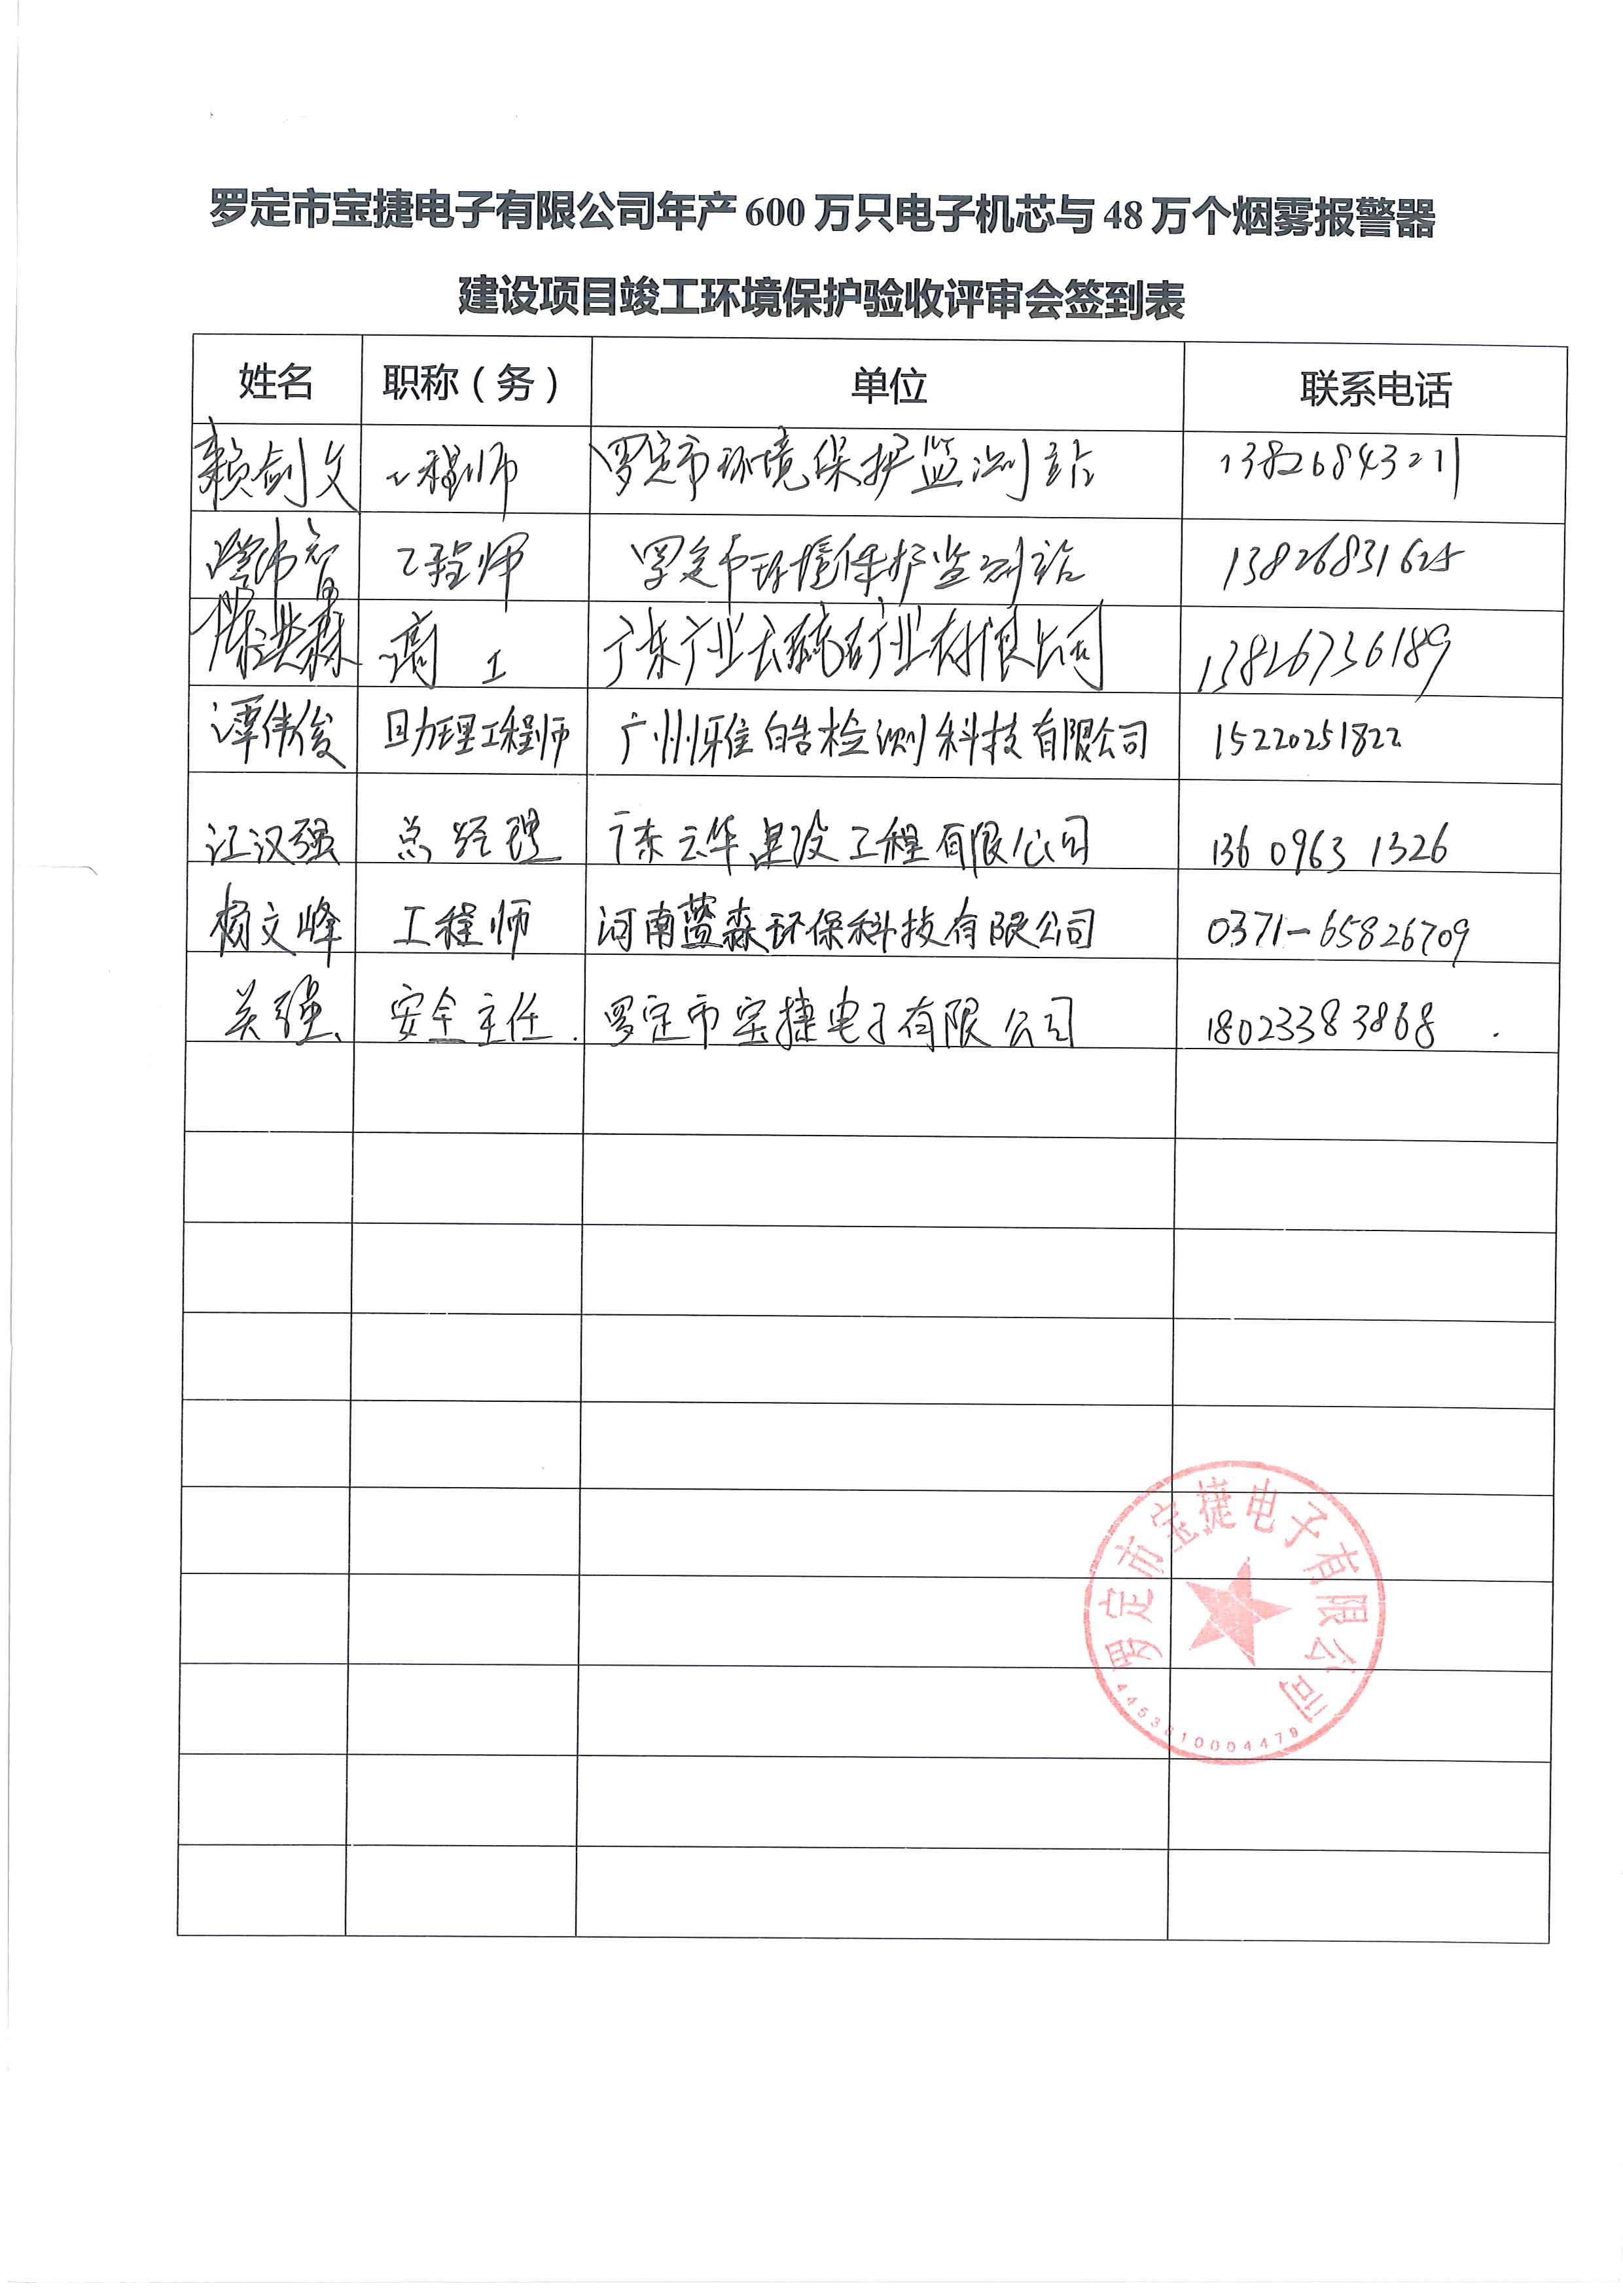 罗定市宝捷电子有限公司年产 600 万只电子机芯与 48 万个烟雾报警器
建设项目竣工环境保护验收评审会签到表
姓名 职称（务） 单位 联系电话
赖剑文 工程师 罗定市环境保护监测站 13826843211
工程师 罗定市环境保护监测站 13826831625
高工 广东广业云硫矿业有限公司 13826736189
谭伟俊 助理工程师 广州雅皓检测科技有限公司 15220251822
江汉强 总经理 广东云华建设工程有限公司 136 0963 1326
杨文峰 工程师 河南蓝森环保科技有限公司 0371-65826709
关强 安全主任 罗定市宝捷电子有限公司 18023383868
罗定市宝捷电子有限公司
4453810004479